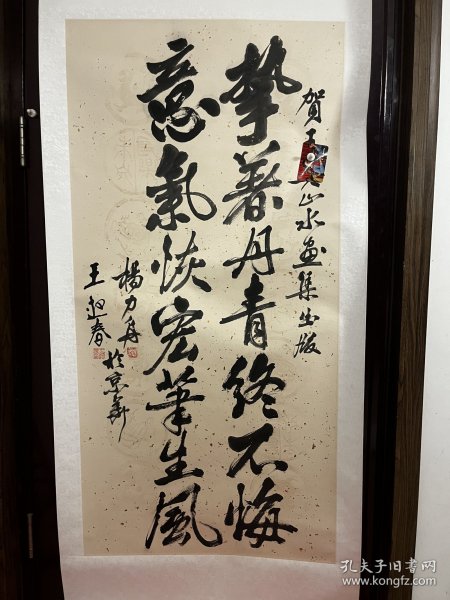 賀王山水画集出版
挚着丹青终不悔
意氣恢宏筆生風
楊力舟
王迎春
於京華
孔夫子旧书网
www.kongfz.com